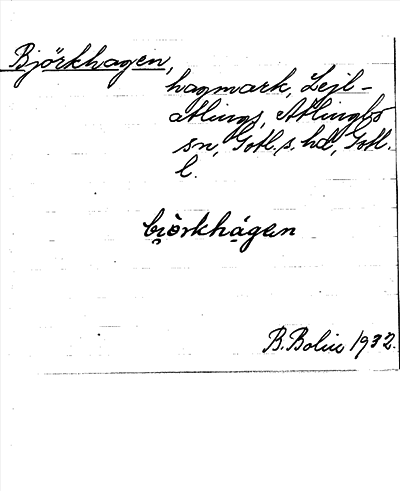 Björkhagen,
hagmark, Lejl-
atlings, Atlingbo
sn, Gotl. s. hd, Gotl.
l.
bi̯òrkhạ́gen
B. Bolin 1932.